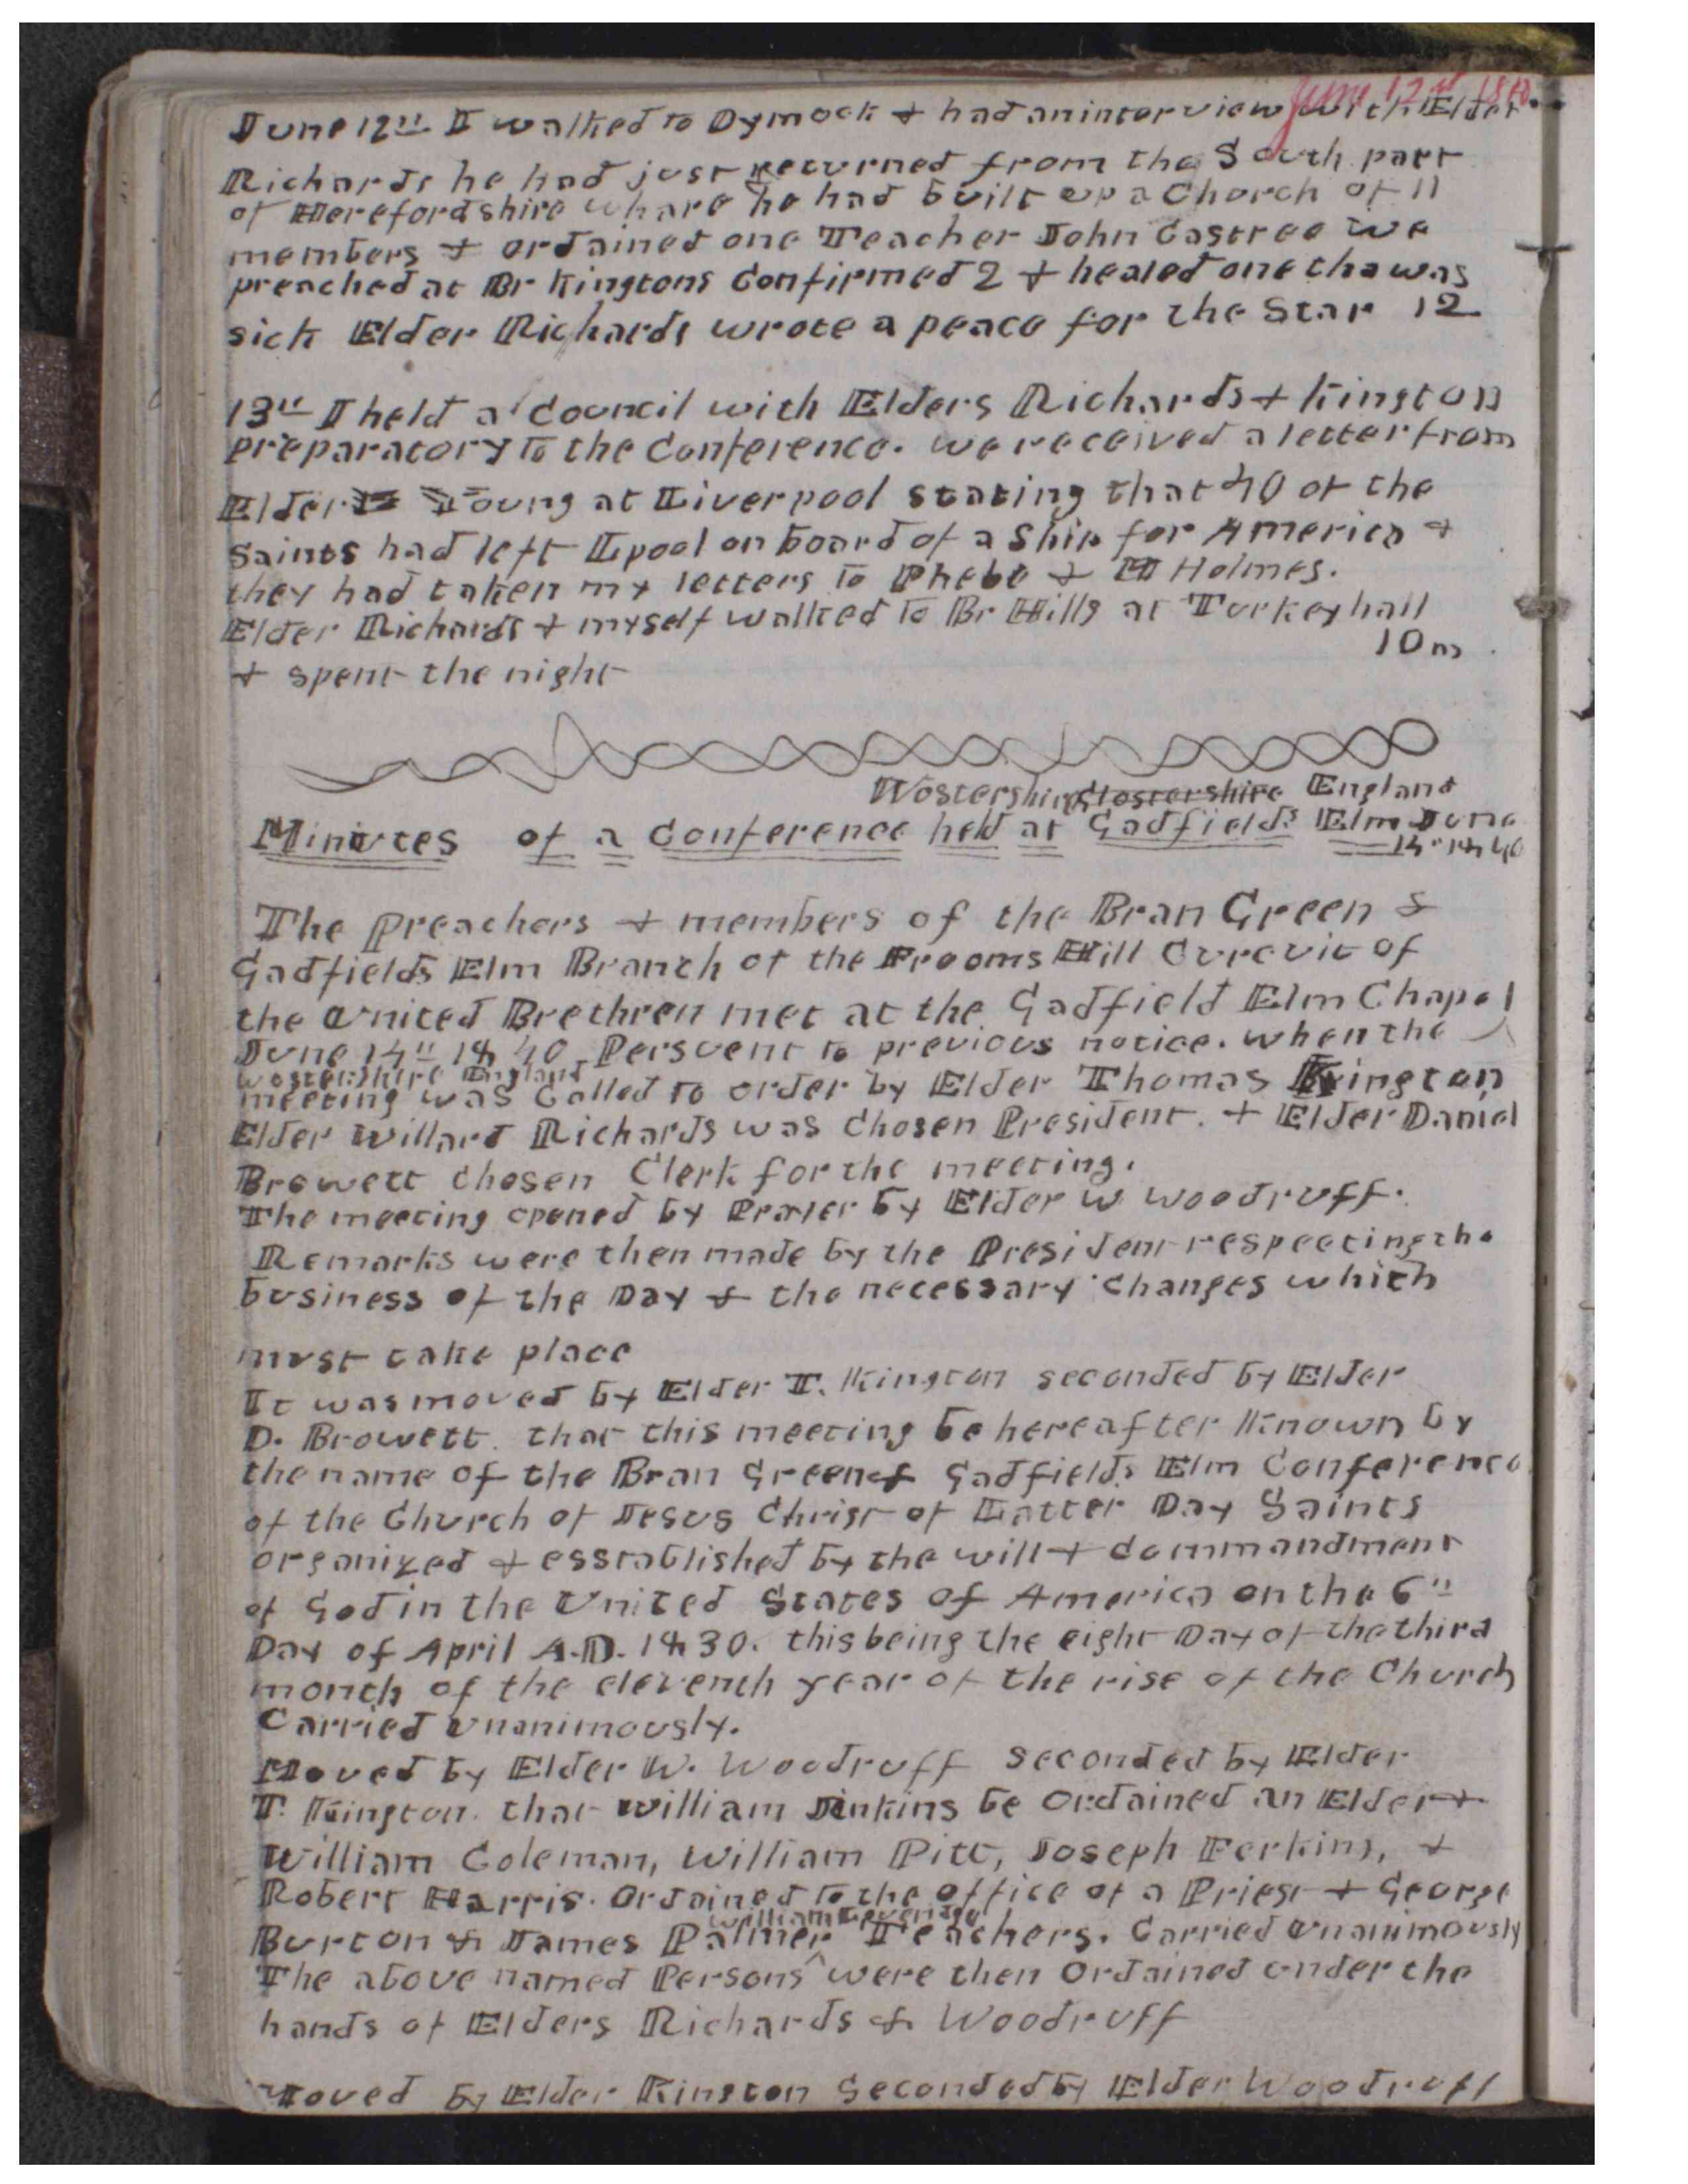 June 12th 1840
June 12th I walked to Dymock & had an interview with Elder
Richards he had just returned from the South part
of Herefordshire whare he had built up a Church of 11
members & ordained one Teacher John Gastree we
preached at Br Kingtons Confirmed 2 & healed one tha was
sick Elder Richards wrote a peace for the Star 12
13th I held a Council with Elders Richards & Kington
preparatory to the Conference. we received a letter from
Elder Young at Liverpool stating that 40 of the
Saints had left Lpool on board of a Ship for America &
they had taken my letters to Phebe & H Holmes.
Elder Richards & myself walked to Br Hills at Turkeyhall
10 m
& spent the night
Wostershire Glostershire England
Minutes of a Conference held at Gadfields Elm June
14th 1840
The Preachers & members of the Bran Green &
Gadfields Elm Branch of the Frooms Hill Curcuit of
the United Brethren met at the Gadfield Elm Chapel
June 14th 1840 Persuent to previous notice. when the
Wostershire England
meeting was Called to order by Elder Thomas Kington
Elder Willard Richards was Chosen President. & Elder Daniel
Browett Chosen Clerk for the meeting.
The meeting opened by Prayer by Elder W Woodruff.
Remarks were then made by the President respecting the
business of the Day & the necessary Changes which
must take place
It was moved by Elder T. Kington seconded by Elder
D. Browett. that this meeting be hereafter Known by
the name of the Bran Green & Gadfields Elm Conference
of the Church of Jesus Christ of Latter Day Saints
organized & esstablished by the will & Commandment
of God in the United States of America on the 6th
Day of April A.D. 1830. this being the eight Day of the third
month of the eleventh year of the rise of the Church
Carried Unanimously.
Moved by Elder W. Woodruff seconded by Elder
T. Kington. that William Jinkins be Ordained an Elder &
William Coleman, William Pitt, Joseph Ferkins, &
Robert Harris. Ordained to the office of a Priest & George
William Leveridge
Burton & James Palmer ^ Teachers. Carried Unanimously
The above named Persons were then Ordained under the
hands of Elders Richards & Woodruff
Moved by Elder Kington Seconded by Elder Woodruff